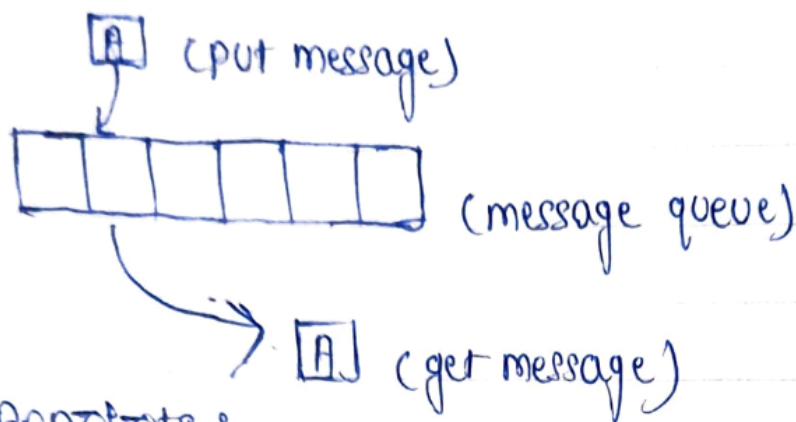 A (put message)
(message queue)
A (get message)